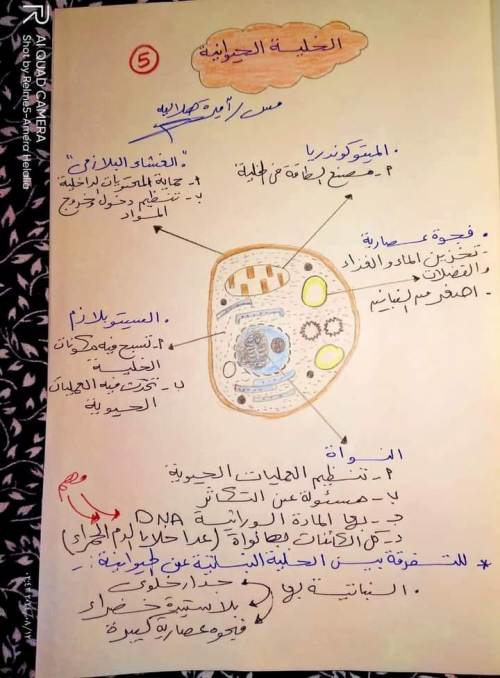 الخلية الحيوانية
5
مس/أميرة هلالية
• الميتوكوندريا
أ- مصنع الطاقة في الخلية
• "الغشاء البلازمي"
أ- حماية المحتويات الداخلية
ب- تنظيم دخول وخروج
المواد
• فجوة عصارية
- تخزين الماء والغذاء
والفضلات
- اصغر من النباتية
• السيتوبلازم
أ- تسبح فيه مكونات
الخلية
ب- تحدث فيه العمليات
الحيوية
النواة
أ- تنظيم العمليات الحيوية
ب- مسئولة عن التكاثر
مهم
ج- بها المادة الوراثية DNA
د- كل الكائنات لها نواة (عدا خلايا الدم الحمراء)
* للتفرقة بين الخلية النباتية عن الحيوانية :-
• النباتية بها جدار خلوي
بلاستيدة خضراء
فجوة عصارية كبيرة
AI QUAD CAMERA
Shot by Relme5-Amera Helalia